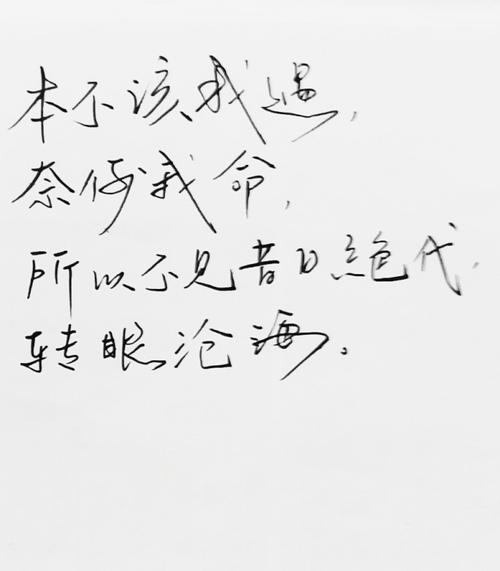 本不该我遇,
奈何我命,
所以不见昔日絶代,
转眼沧海。